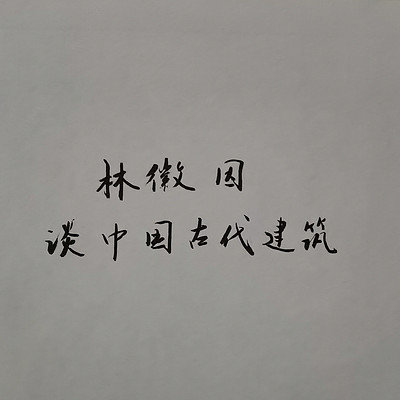 林徽因
谈中国古代建筑